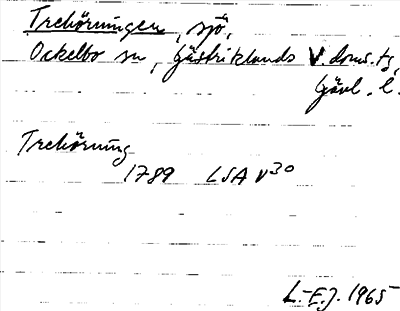 Trehörningen, sjö,
Ockelbo sn, Gästriklands V. doms.tg,
Gävl. l.
Trehörning
1789 LSA V30
L.-E.J. 1965